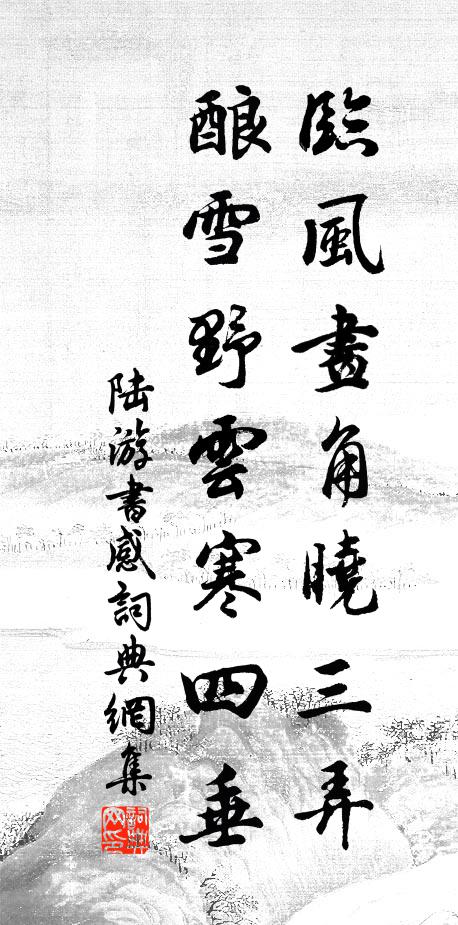 臨風畫角曉三弄
酿雪野雲寒四垂
陆游書感詞典網集